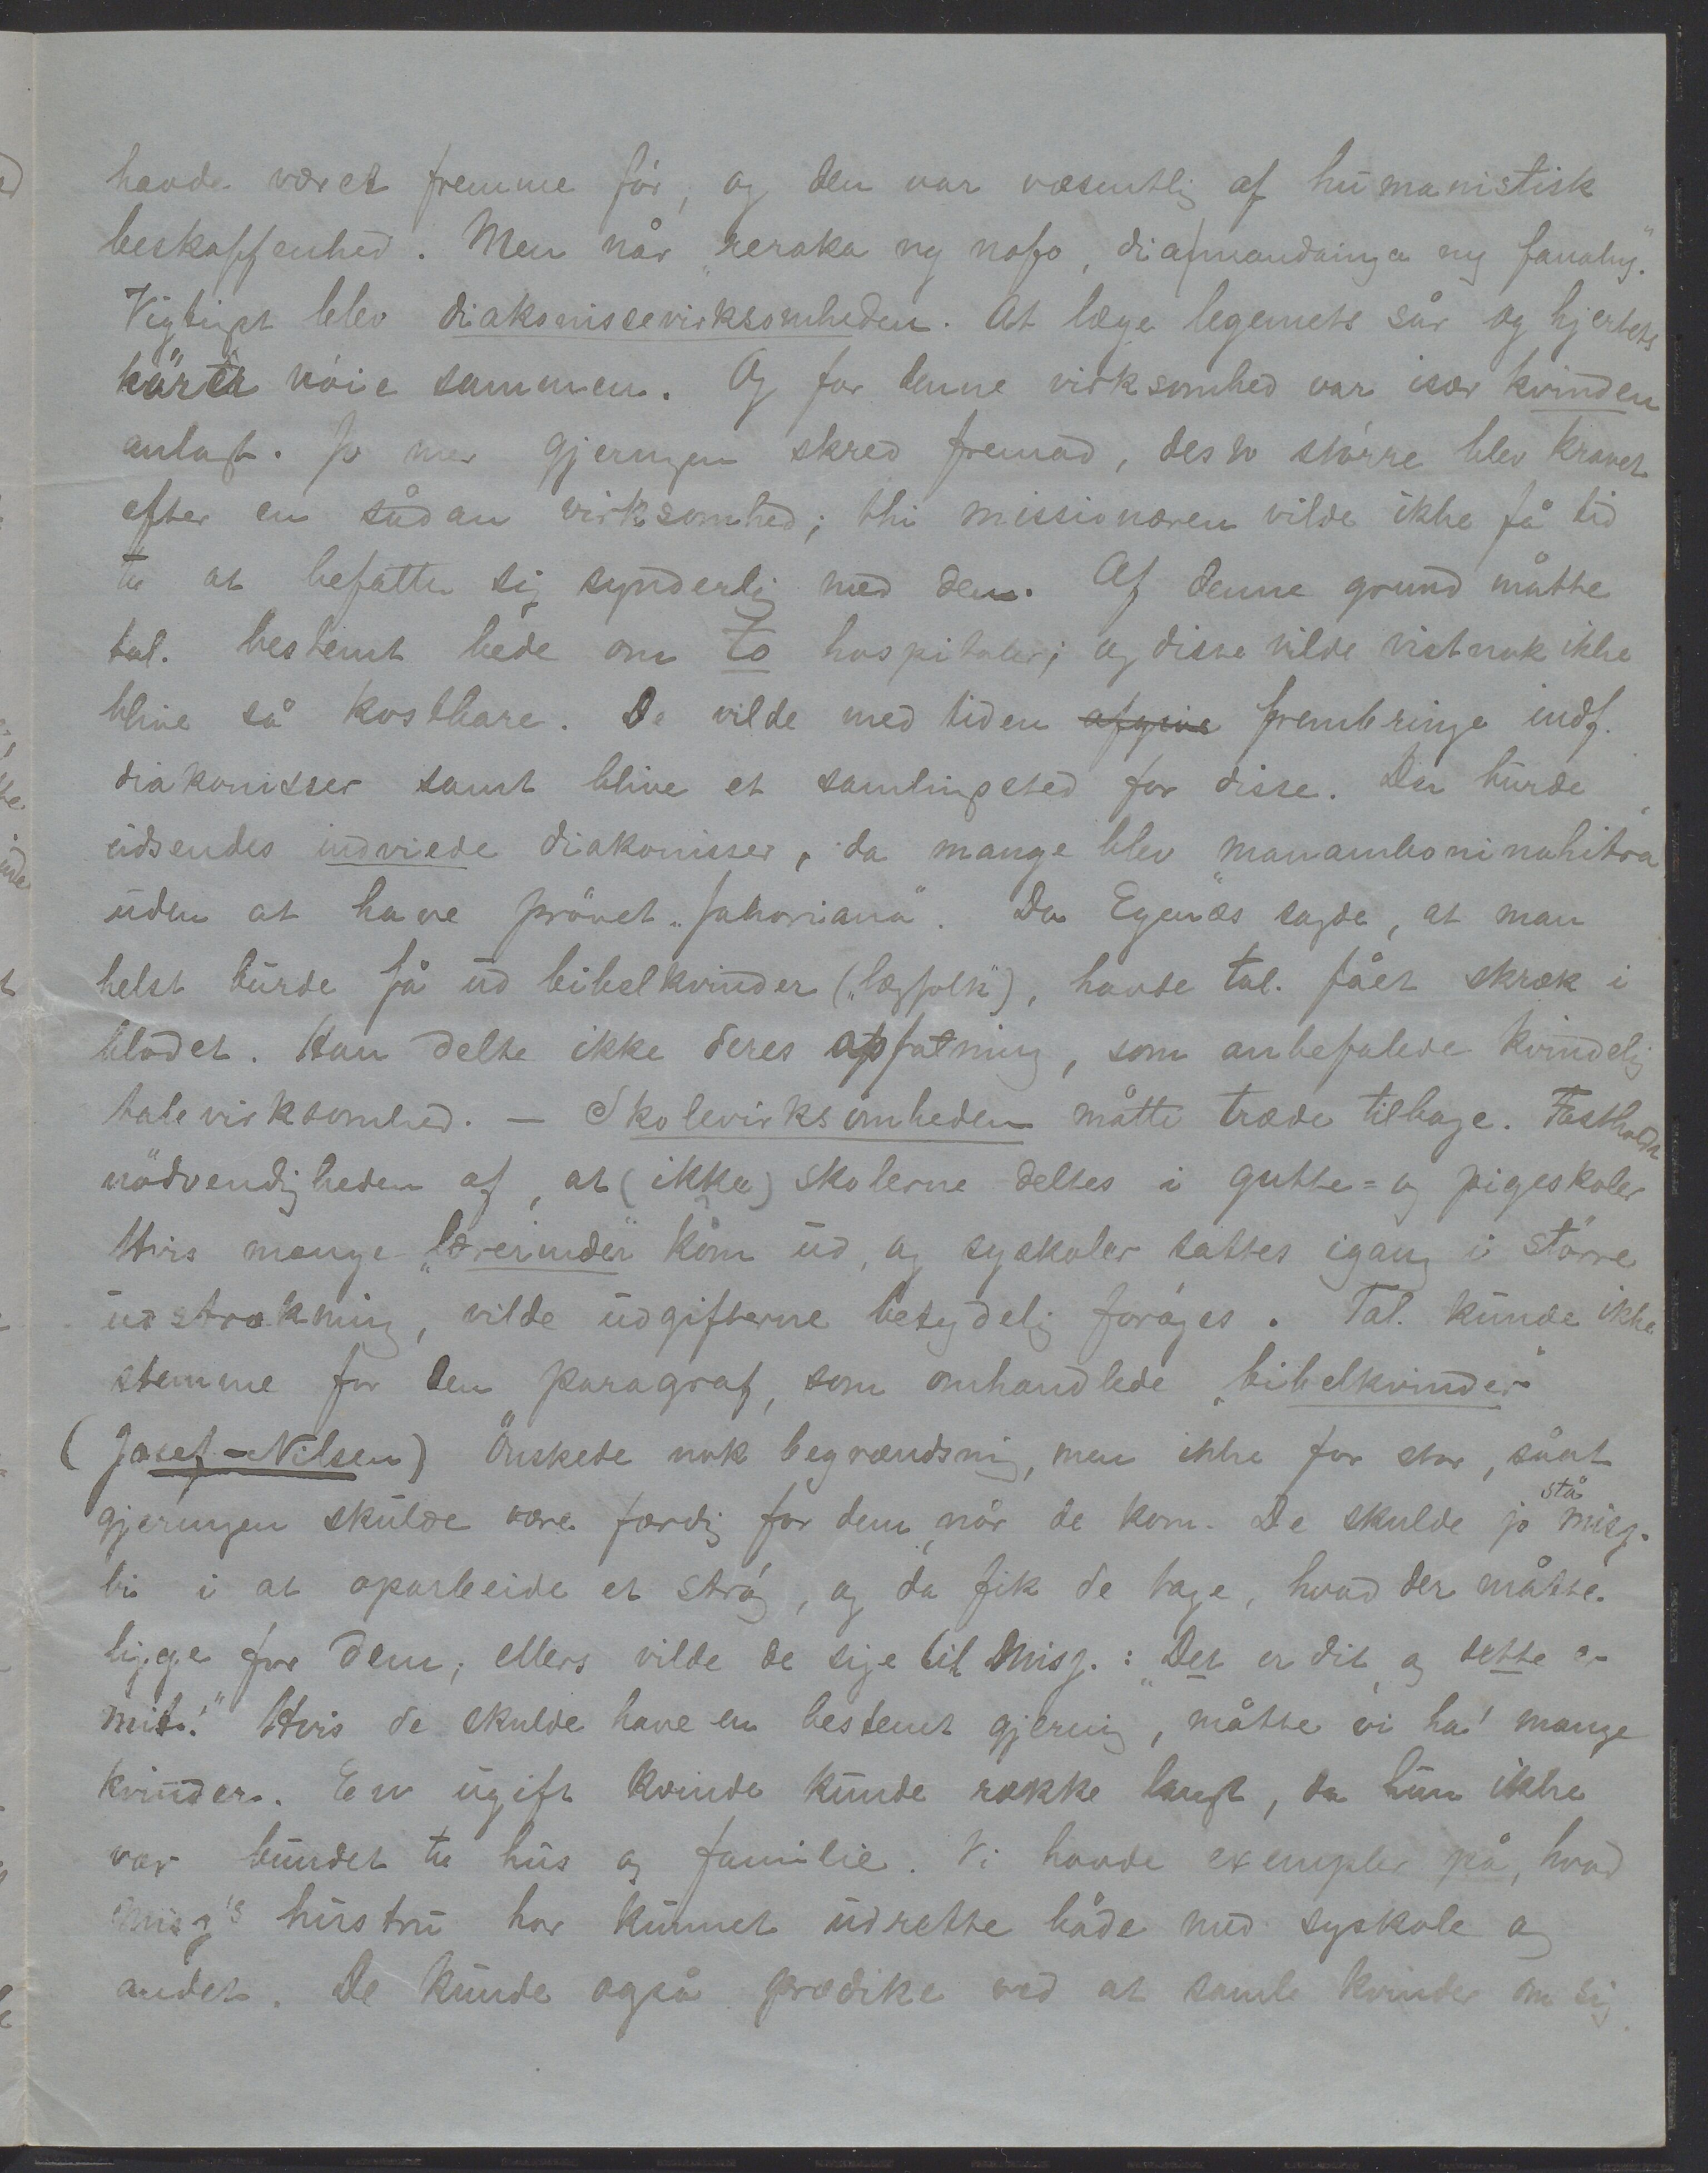 havde været fremme før, og den var væsentlig af humanistisk
beskaffenhed. Men når "reraka ny nofo, dia mandainga ny fanahy."
Vigtigst blev diakonissevirksomheden. At læge legemets sår og hjertets
hörte nöie sammen. Og for denne virksomhed var især kvinden
anlagt. Jo mer gjerningen skred fremad, desto större blev kravet
efter en sådan virksomhed; thi missionæren vilde ikke få tid
til at befatte sig synderlig med den. Af denne grund måtte
tal. bestemt bede om to hospitaler; og disse vilde vistnok ikke
blive så kostbare. De vilde med tiden afgive frembringe indf.
diakonisser samt blive et samlingsted for disse. Der burde
udsendes indviede diakonisser, da mange blev "manamboninahitra"
uden at have prövet "fahoriana". Da Egenæs sagde, at man
helst burde få ud bibelkvinder ("lægfolk"), havde tal. fået skræk i
blodet. Han delte ikke deres opfatning, som anbefalede kvindelig
talevirksomhed. — Skolevirksomheden måtte træde tilbage. Fastholdt
nödvendigheden af, at (ikke) skolerne deltes i gutte= og pigeskoler
Hvis mange "lærerinder" kom ud, og syskoler sattes igang i större
udstrækning, vilde udgifterne betydelig foröges. Tal. kunde ikke
stemme for den paragraf, som omhandlede "bibelkvinder"
(Josef-Nilsen) Önskede nok begrændsning, men ikke for stor, såat
gjerningen skulde være færdig for dem, når de kom. De skulde jo stå misj.
bi i at oparbeide et strög, og da fik de tage, hvad der måtte
ligge for dem; ellers vilde de sige til Misj.: "Det er dit, og dette er
mit!" Hvis de skulde have en bestemt gjerning, måtte vi ha! mange
kvinder. En ugift kvinde kunde række langt, da hun ikke
var bundet til hus og familie. Vi havde exempler på, hvad
misj's hustru har kunnet udrette både med syskole og
andet. De kunde også prædike ved at samle kvinder om sig